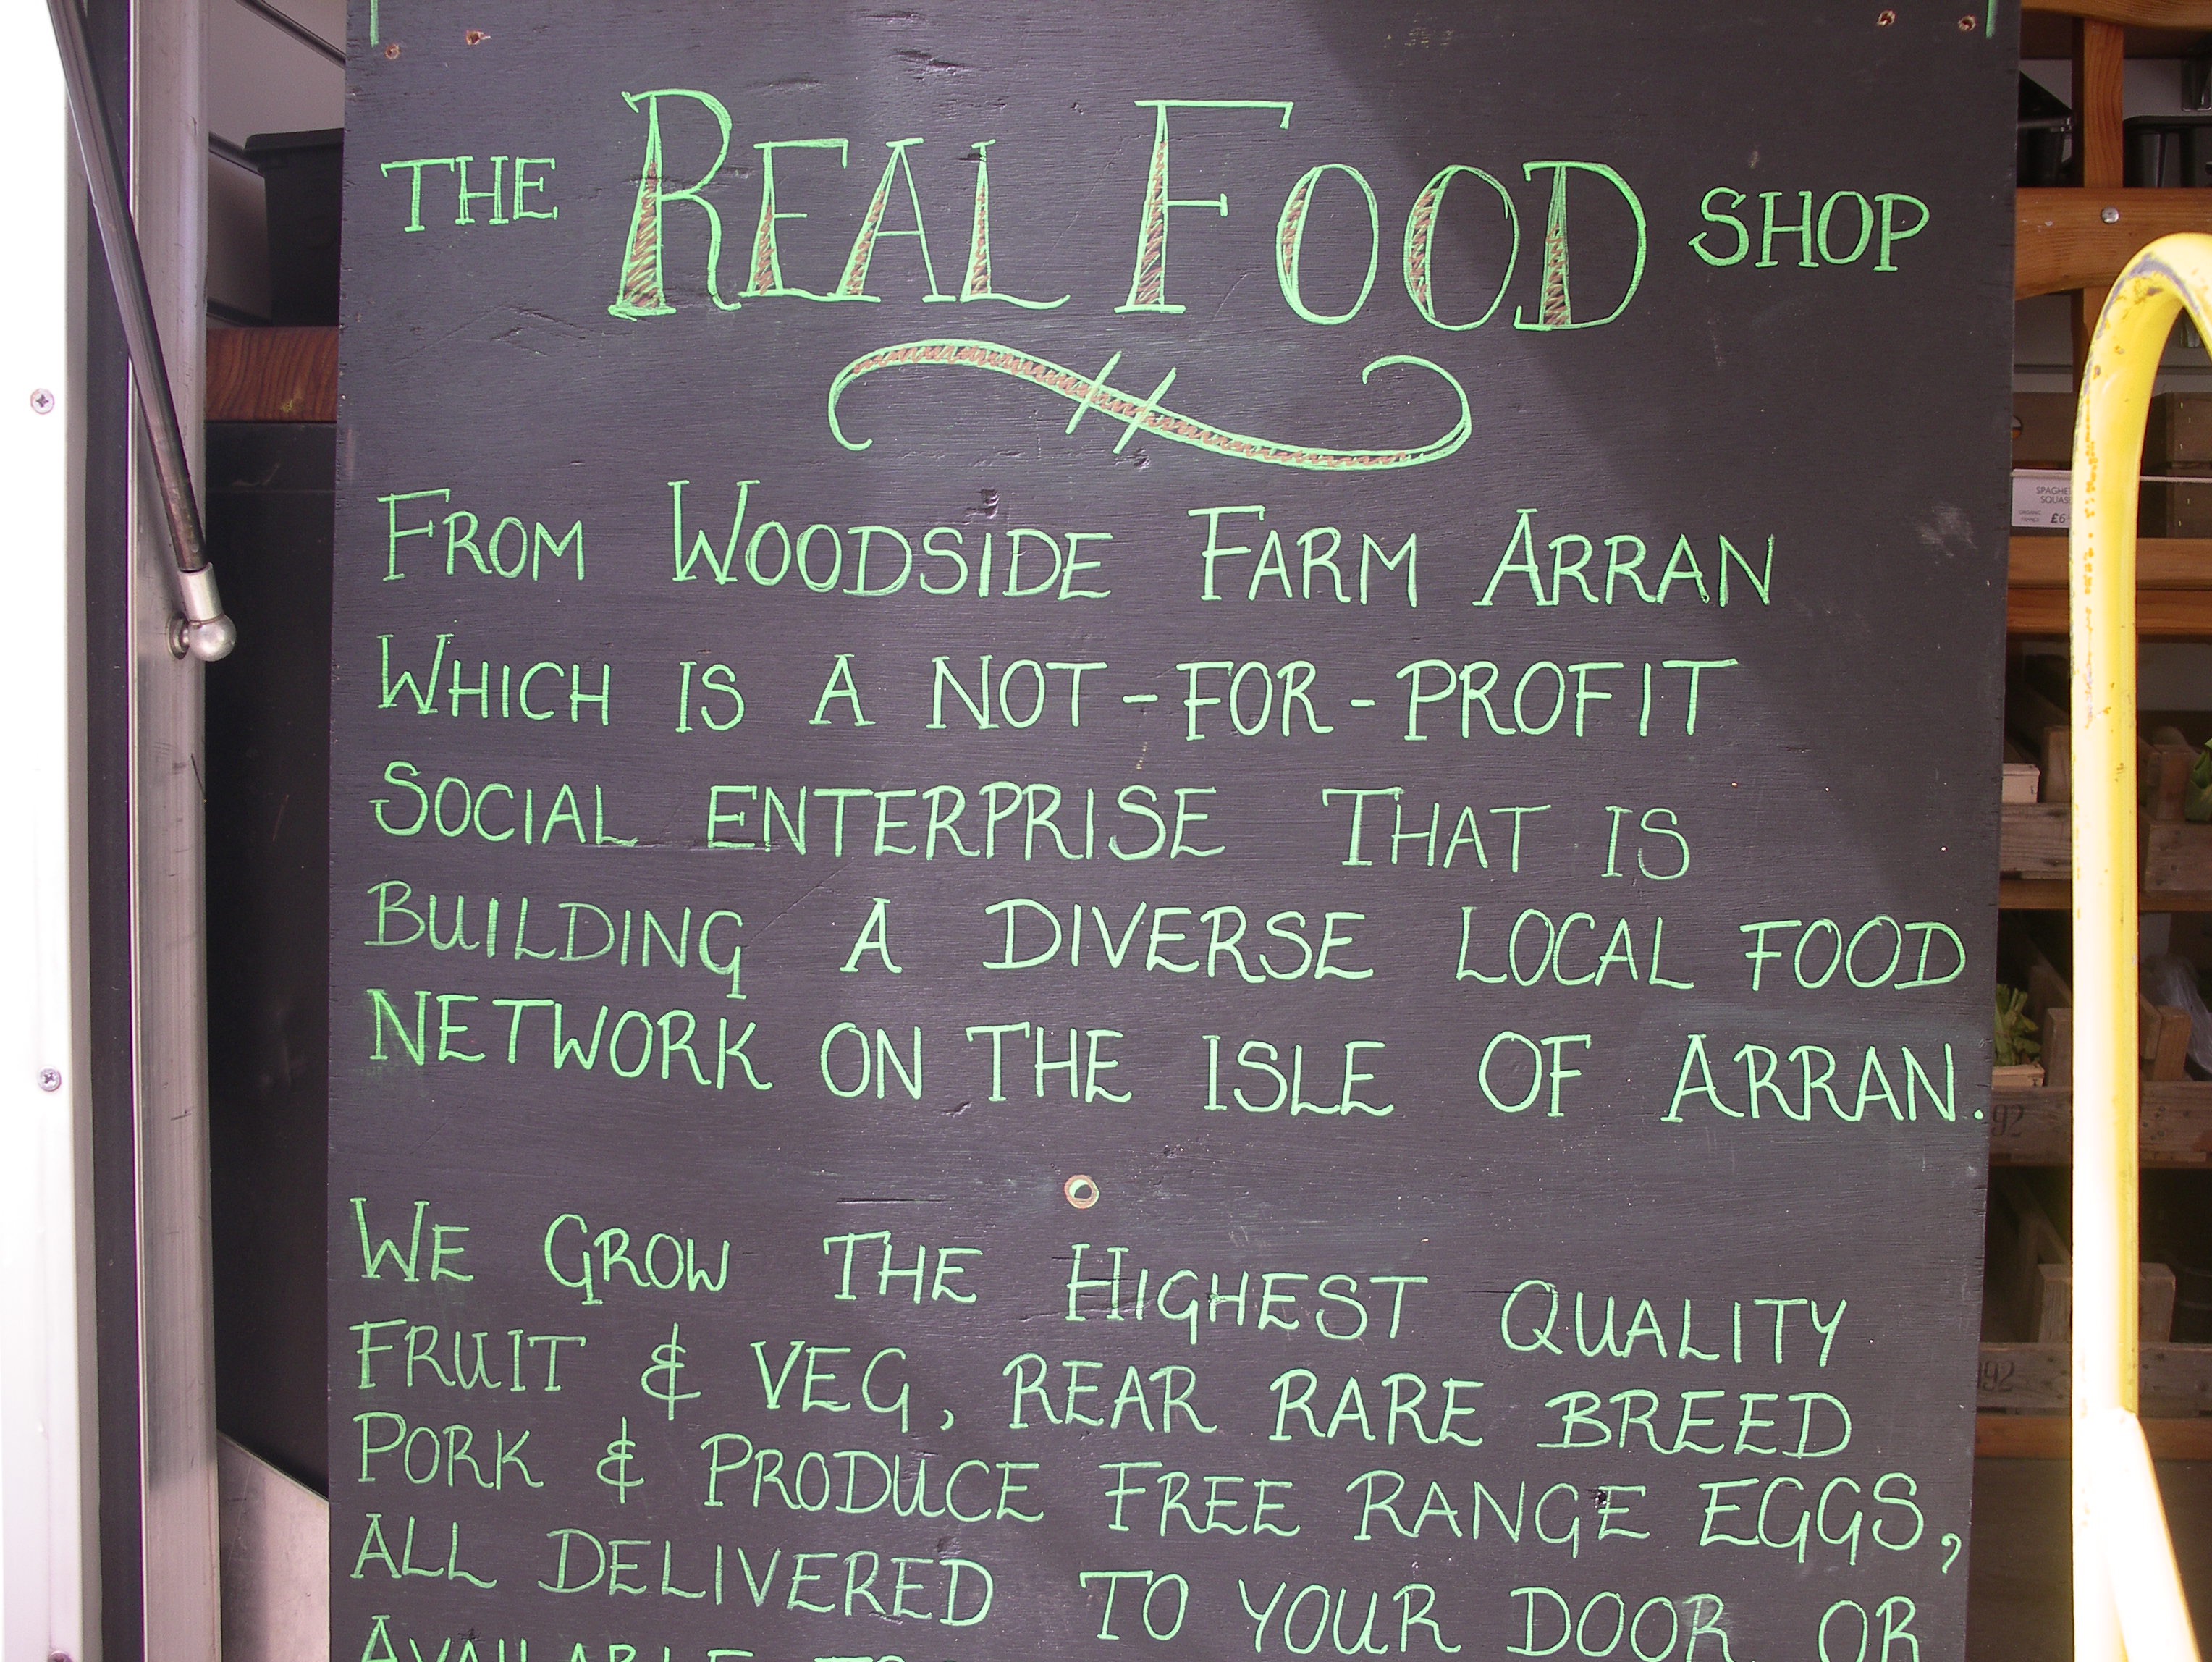 THE REAL FOOD SHOP
FROM WOODSIDE FARM ARRAN
WHICH IS A NOT-FOR-PROFIT
SOCIAL ENTERPRISE THAT IS
BUILDING A DIVERSE LOCAL FOOD
NETWORK ON THE ISLE OF ARRAN.
WE GROW THE HIGHEST QUALITY
FRUIT & VEG, REAR RARE BREED
PORK & PRODUCE FREE RANGE EGGS,
ALL DELIVERED TO YOUR DOOR OR
AVAILABLE TO
£6
92
92